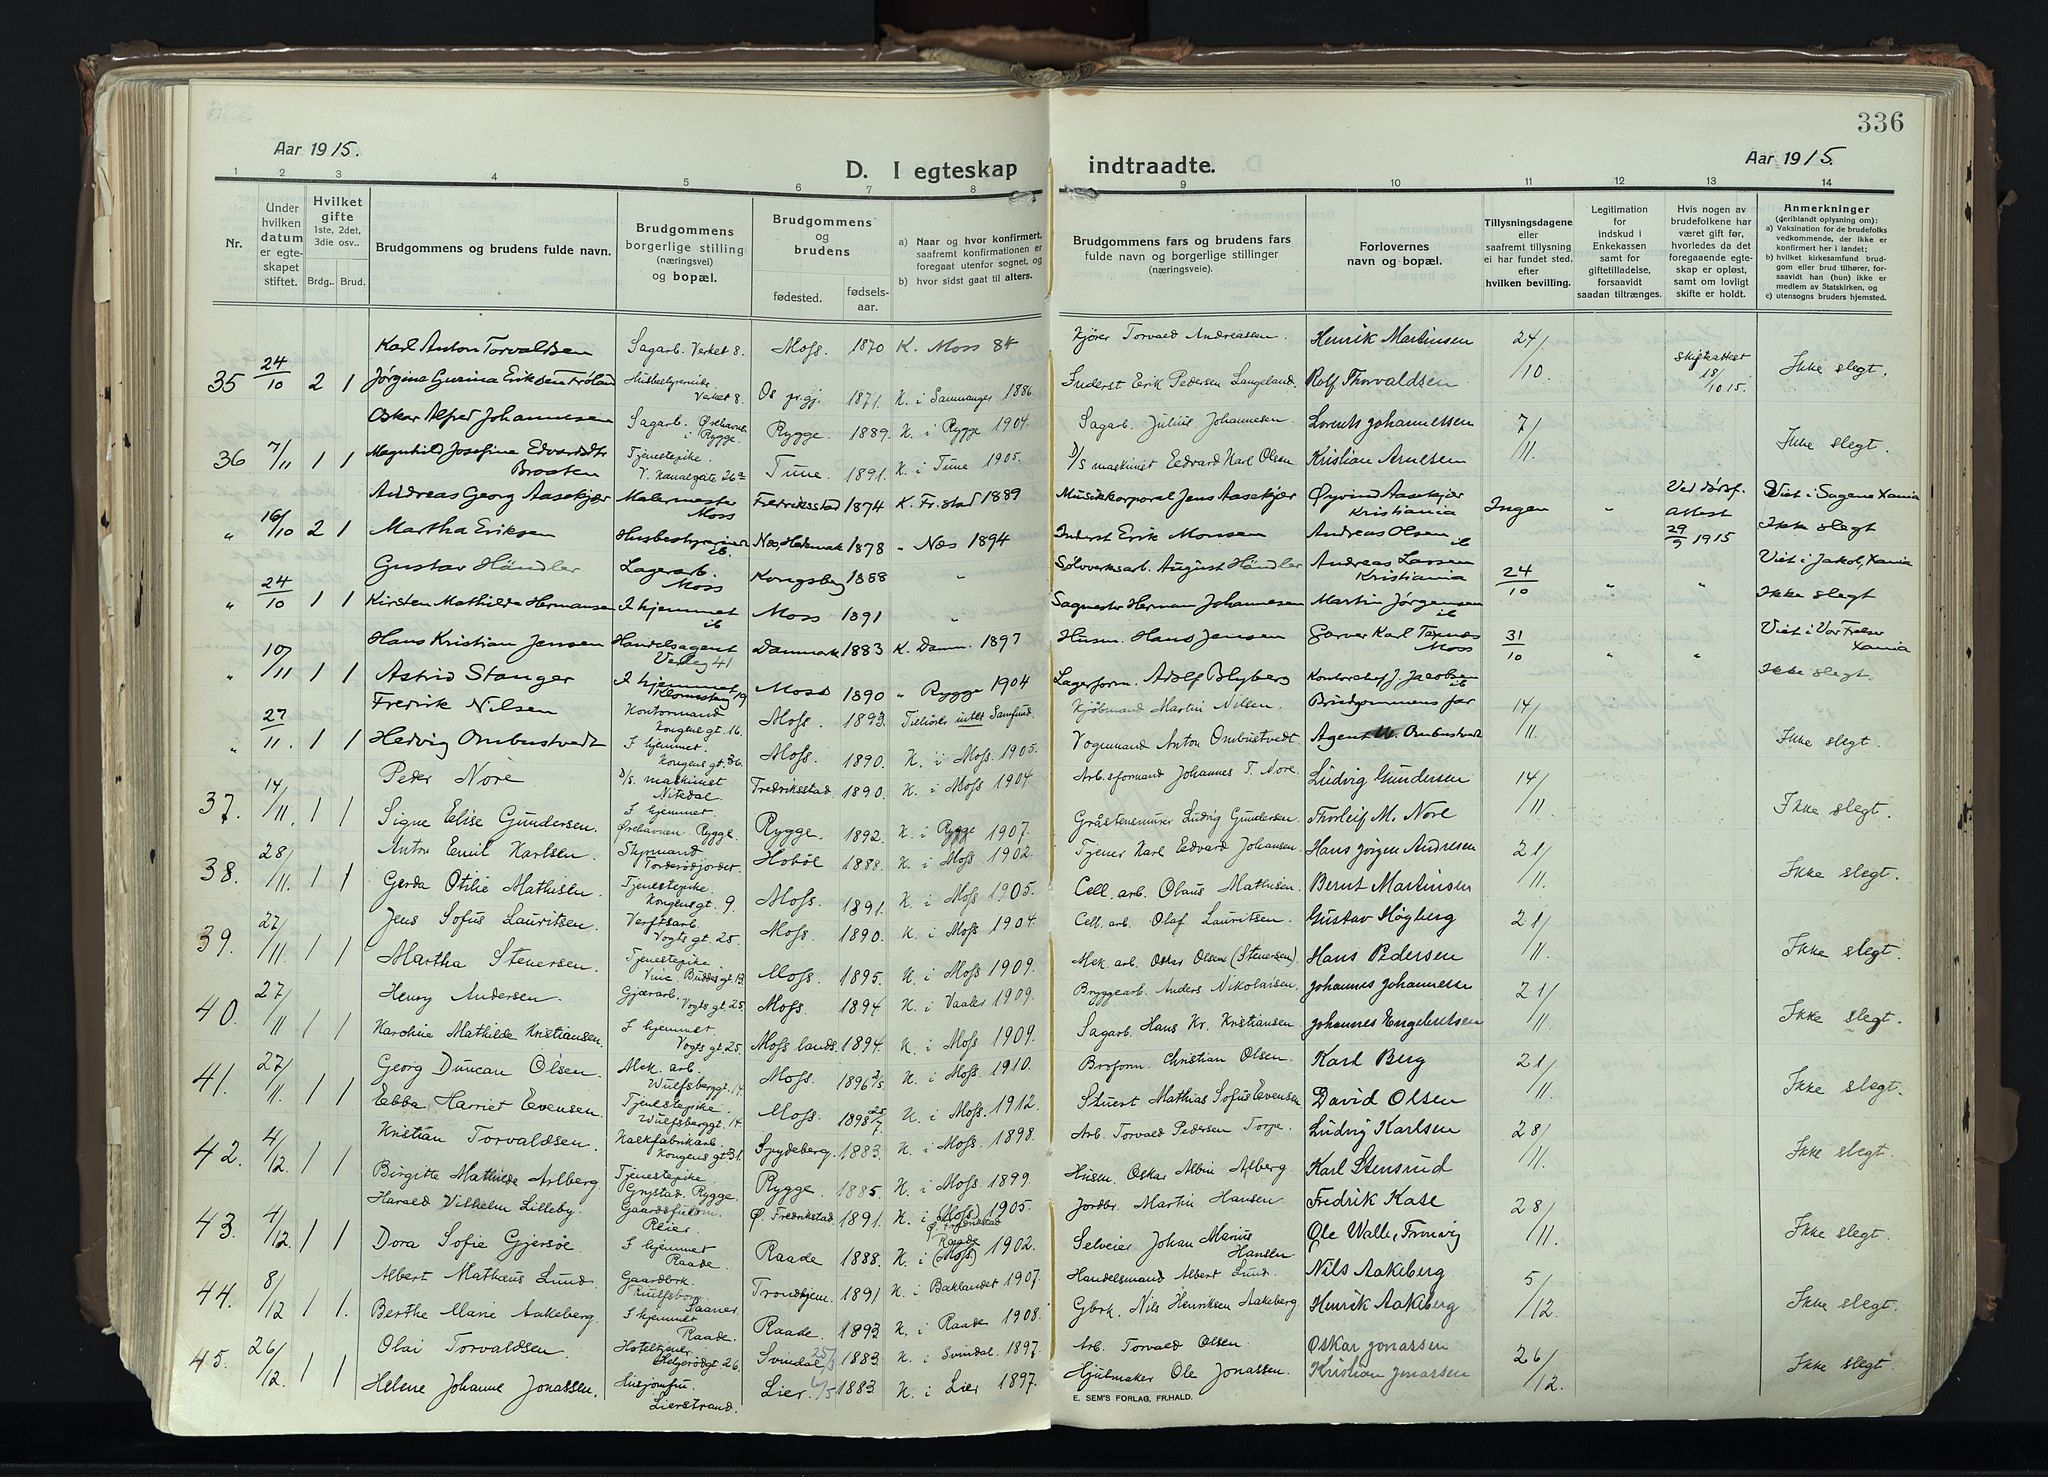 336
Aar 1915.
D. I egteskap
indtraadte.
Aar 1915.
1 2 3 4 5 6 7 8 9 10 11 12 13 14
Nr.
Under hvilken datum er egteskapet stiftet.
Hvilket gifte 1ste, 2det, 3die osv..
Brdg.. Brud.
Brudgommens og brudens fulde navn.
Brudgommens borgerlige stilling (næringsvei) og bopæl.
Brudgommens og brudens
fødested. fødselsaar.
a) Naar og hvor konfirmert, saafremt konfirmationen er foregaat utenfor sognet, og
b) hvor sidst gaat til alters.
Brudgommens fars og brudens fars fulde navn og borgerlige stillinger (næringsveie).
Forlovernes navn og bopæl.
Tillysningsdagene eller saafremt tillysning ei har fundet sted, efter hvilken bevilling.
Legitimation for indskud i Enkekassen samt for giftetilladelse, forsaavidt saadan tiltrænges.
Hvis nogen av brudefolkene har været gift før, hvorledes da det foregaaende egteskap er opløst, samt om lovligt skifte er holdt.
Anmerkninger (deriblandt oplysning om):
a) Vaksination for de brudefolks vedkommende, der ikke er konfirmert her i landet;
b) hvilket kirkesamfund brudgom eller brud tilhører, forsaavidt han (hun) ikke er medlem av Statskirken, og
c) utensogns bruders hjemsted.
Karl Anton Torvaldsen Sagarb. Verket 8. Moss. 1870 K. Moss 84 Kjører Torvald Andreassen Henrik Martinsen 24/10
35 24/10 2 1 Jørgine Gurina Eriksen Verket 8. Os pr.gj. 1871. K. i Samnanger 1886. Inderst Erik Pedersen Langeland. Rolf Thorvaldsen 18/10 15. Ikke slegt.
Oskar Alfred Johannesen Sagarb. i Rygge. Rygge. 1889. K. i Rygge 1904. Sagarb. Julius Johannesen Lorents Johannessen 7/11
36 7/11 1 1 Magnhild Josefine Edvardsdtr Braaten Tjenestepike V. Kanalgate 26a Tune. 1891. K. i Tune 1905. D/s maskinist Edvard Karl Olsen Kristian Arnesen Ikke slegt.
Andreas Georg Aasekjær Malermester Moss Fredriksstad 1874 K. Fr.stad 1889 Musikkorporal Jens Aasekjær Øyvind Aasekjær Kristiania Ingen " Ved dødsf. Viet i Sagene Xania
" 16/10 2 1 Martha Eriksen Husbestyrerinde ib. Næs, Hedemark 1878 " Næs 1894 Inderst Erik Monsen Andreas Olsen ib Attest 29/9 1915 Ikke slegt
Gustav Händler Lagerarb. Moss Kongsberg 1888 " Sølvverksarb. August Händler Andreas Larsen Kristiania 24/10 " " Viet i Jakob, Xania
" 24/10 1 1 Kirsten Mathilde Hermansen I hjemmet ib Moss 1891 " Sagmester Herman Johannesen Martin Jørgensen ib Ikke slegt
Hans Kristian Jensen Handelsagent Danmark 1883 K. Danm. 1897 Husm. Hans Jensen Garver Karl Moss 31/10 " " Viet i Vor Frelser Xania
" 10/11 1 1 Astrid Stanger I hjemmet Moss 1890 " Rygge 1904 Lagerform. Adolf Blyberg Kontorchef J. Jacobsen ib Ikke slegt.
Fredrik Nilsen Kontormand Kongens gt. 16. Moss. 1893. Tilhører intet Samfund. Kjøbmand Martin Nilsen. Brudgommens far 14/11
" 27/11. 1 1 Hedvig Ombustvedt I hjemmet. Kongens gt. 36. Moss. 1890. K. i Moss 1905. Vognmand Anton Ombustvedt Agent W. Ombustvedt Ikke slegt.
Peder Nore D/s maskinist Nitedal. Fredriksstad. 1890. K. i Moss 1904. Arb.sformand Johannes T. Nore. Ludvig Gundersen 14/11
37. 14/11. 1 1 Signe Elise Gundersen. I hjemmet. Ørehavnen. Rygge Rygge. 1892. K. i Rygge 1907. Gråstensmurer Ludvig Gundersen. Thorleif M. Nore Ikke slegt.
Anton Emil Karlsen. Styrmand Hobøl 1888. K. i Moss 1902. Tjener Karl Edvard Johansen. Hans Jørgen Andresen 21/11.
38. 28/11. 1 1 Gerda Otilie Mathisen. Tjenestepike Kongens gt. 9. Moss. 1891. K. i Moss 1905. Cell. arb. Olaus Mathisen. Bernt Martinsen Ikke slegt.
Jens Sofus Lauritsen. Verftsarb. Vogts gt. 25. Moss. 1890. K. i Moss 1904. Cell. arb. Olaf Lauritsen. Gustav Høyberg 21/11.
39. 27/11. 1 1 Martha Stenersen. Tjenestepike Moss. 1895. K. i Moss 1909. Mek. arb. Oskar Olsen (Stenersen). Hans Pedersen Ikke slegt.
Henry Andersen. Gjærarb. Vogts gt. 25. Moss. 1894 K. i Vaaler 1909. Bryggearb. Anders Nikolaisen. Johannes Johannesse 21/11.
40. 27/11 1 1 Karoline Mathilde Kristiansen. I hjemmet Vogts gt. 25. Moss lands. 1894. K. i Moss 1909. Sagarb. Hans Kr. Kristiansen. Johannes Engebretsen Ikke slegt.
Georg Duncan Olsen. Mek. arb. Wulfsberggt. 14. Moss. 1896 2/5 K. i Moss. 1910. Broform. Christian Olsen. Karl Berg 21/11.
41. 27/11. 1 1 Ebba Harriet Evensen. Tjenestepike. Wulfsberggt. 14. Moss. 1898 25/7 K. i Moss. 1912. Stuert Mathias Sofus Evensen David Olsen Ikke slegt.
Kristian Torvaldsen. Kalkfabrikarb. Kongens gt. 31. Spydeberg. 1883. K. i Moss. 1898. Arb. Torvald Pedersen Torpe. Ludvig Karlsen 28/11.
42. 4/12. 1 1 Birgitte Mathilde Arlberg. Tjenestepike. Grystad. Rygge. Rygge. 1885. K. i Moss. 1899 Husm. Oskar Albin Alberg. Karl Stensrud Ikke slegt.
Harald Vilhelm Lilleby. Reier. Ø. Fredrikstad. 1891. K. i (Moss) 1905. Ø. Fredrikstad Jordbr. Martin Hansen. Fredrik Kase 28/11.
43. 4/12. 1 1 Dora Sofie Gjersøe. I hjemmet Raade. Raade 1888. K. i (Moss.) Raade 1902. Selveier Johan Marius Hansen Ole Walle, Tronvig Ikke slegt.
Albert Mathæus Lund. Gaardbrk. Saaner. Trondhjem. 1891 K. i Baklandet 1907. Handelsmand Albert Lund. Nils Aakeberg 5/12.
44. 8/12 1 1. Berthe Marie Aakeberg. I hjemmet Raade. Raade. 1893 K. i Raade 1908. Gbrk. Nils Henriksen Aakeberg. Henrik Aakeberg Ikke slegt.
Olai Torvaldsen. Hoteltjener Helgerødgt 26. Svindal 25/3 1883. K. i Svindal. 1897. Arb. Torvald Olsen. Oskar Jonassen 26/12.
45. 26/12. 1 1 Helene Johanne Jonassen. Husjomfru. Lierstrand. Lier. 1883 K. i Lier 1897. Hjulmaker Ole Jonassen. Kristian Jonassen Ikke slegt.
E. SEM'S FORLAG, FR.HALD.